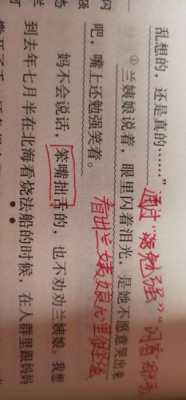 闪
乱想的,还是真的……”
①兰姨娘说着,眼里闪着泪光,是她不愿意哭出来
吧,嘴上还勉强笑着。
通过“勉强”“闪着泪光”
看出兰姨娘心里
妈不会说话,笨嘴拙舌的,也不劝劝兰姨娘。我想
到去年七月半在北海看烧法船的时候,在人群里跟妈